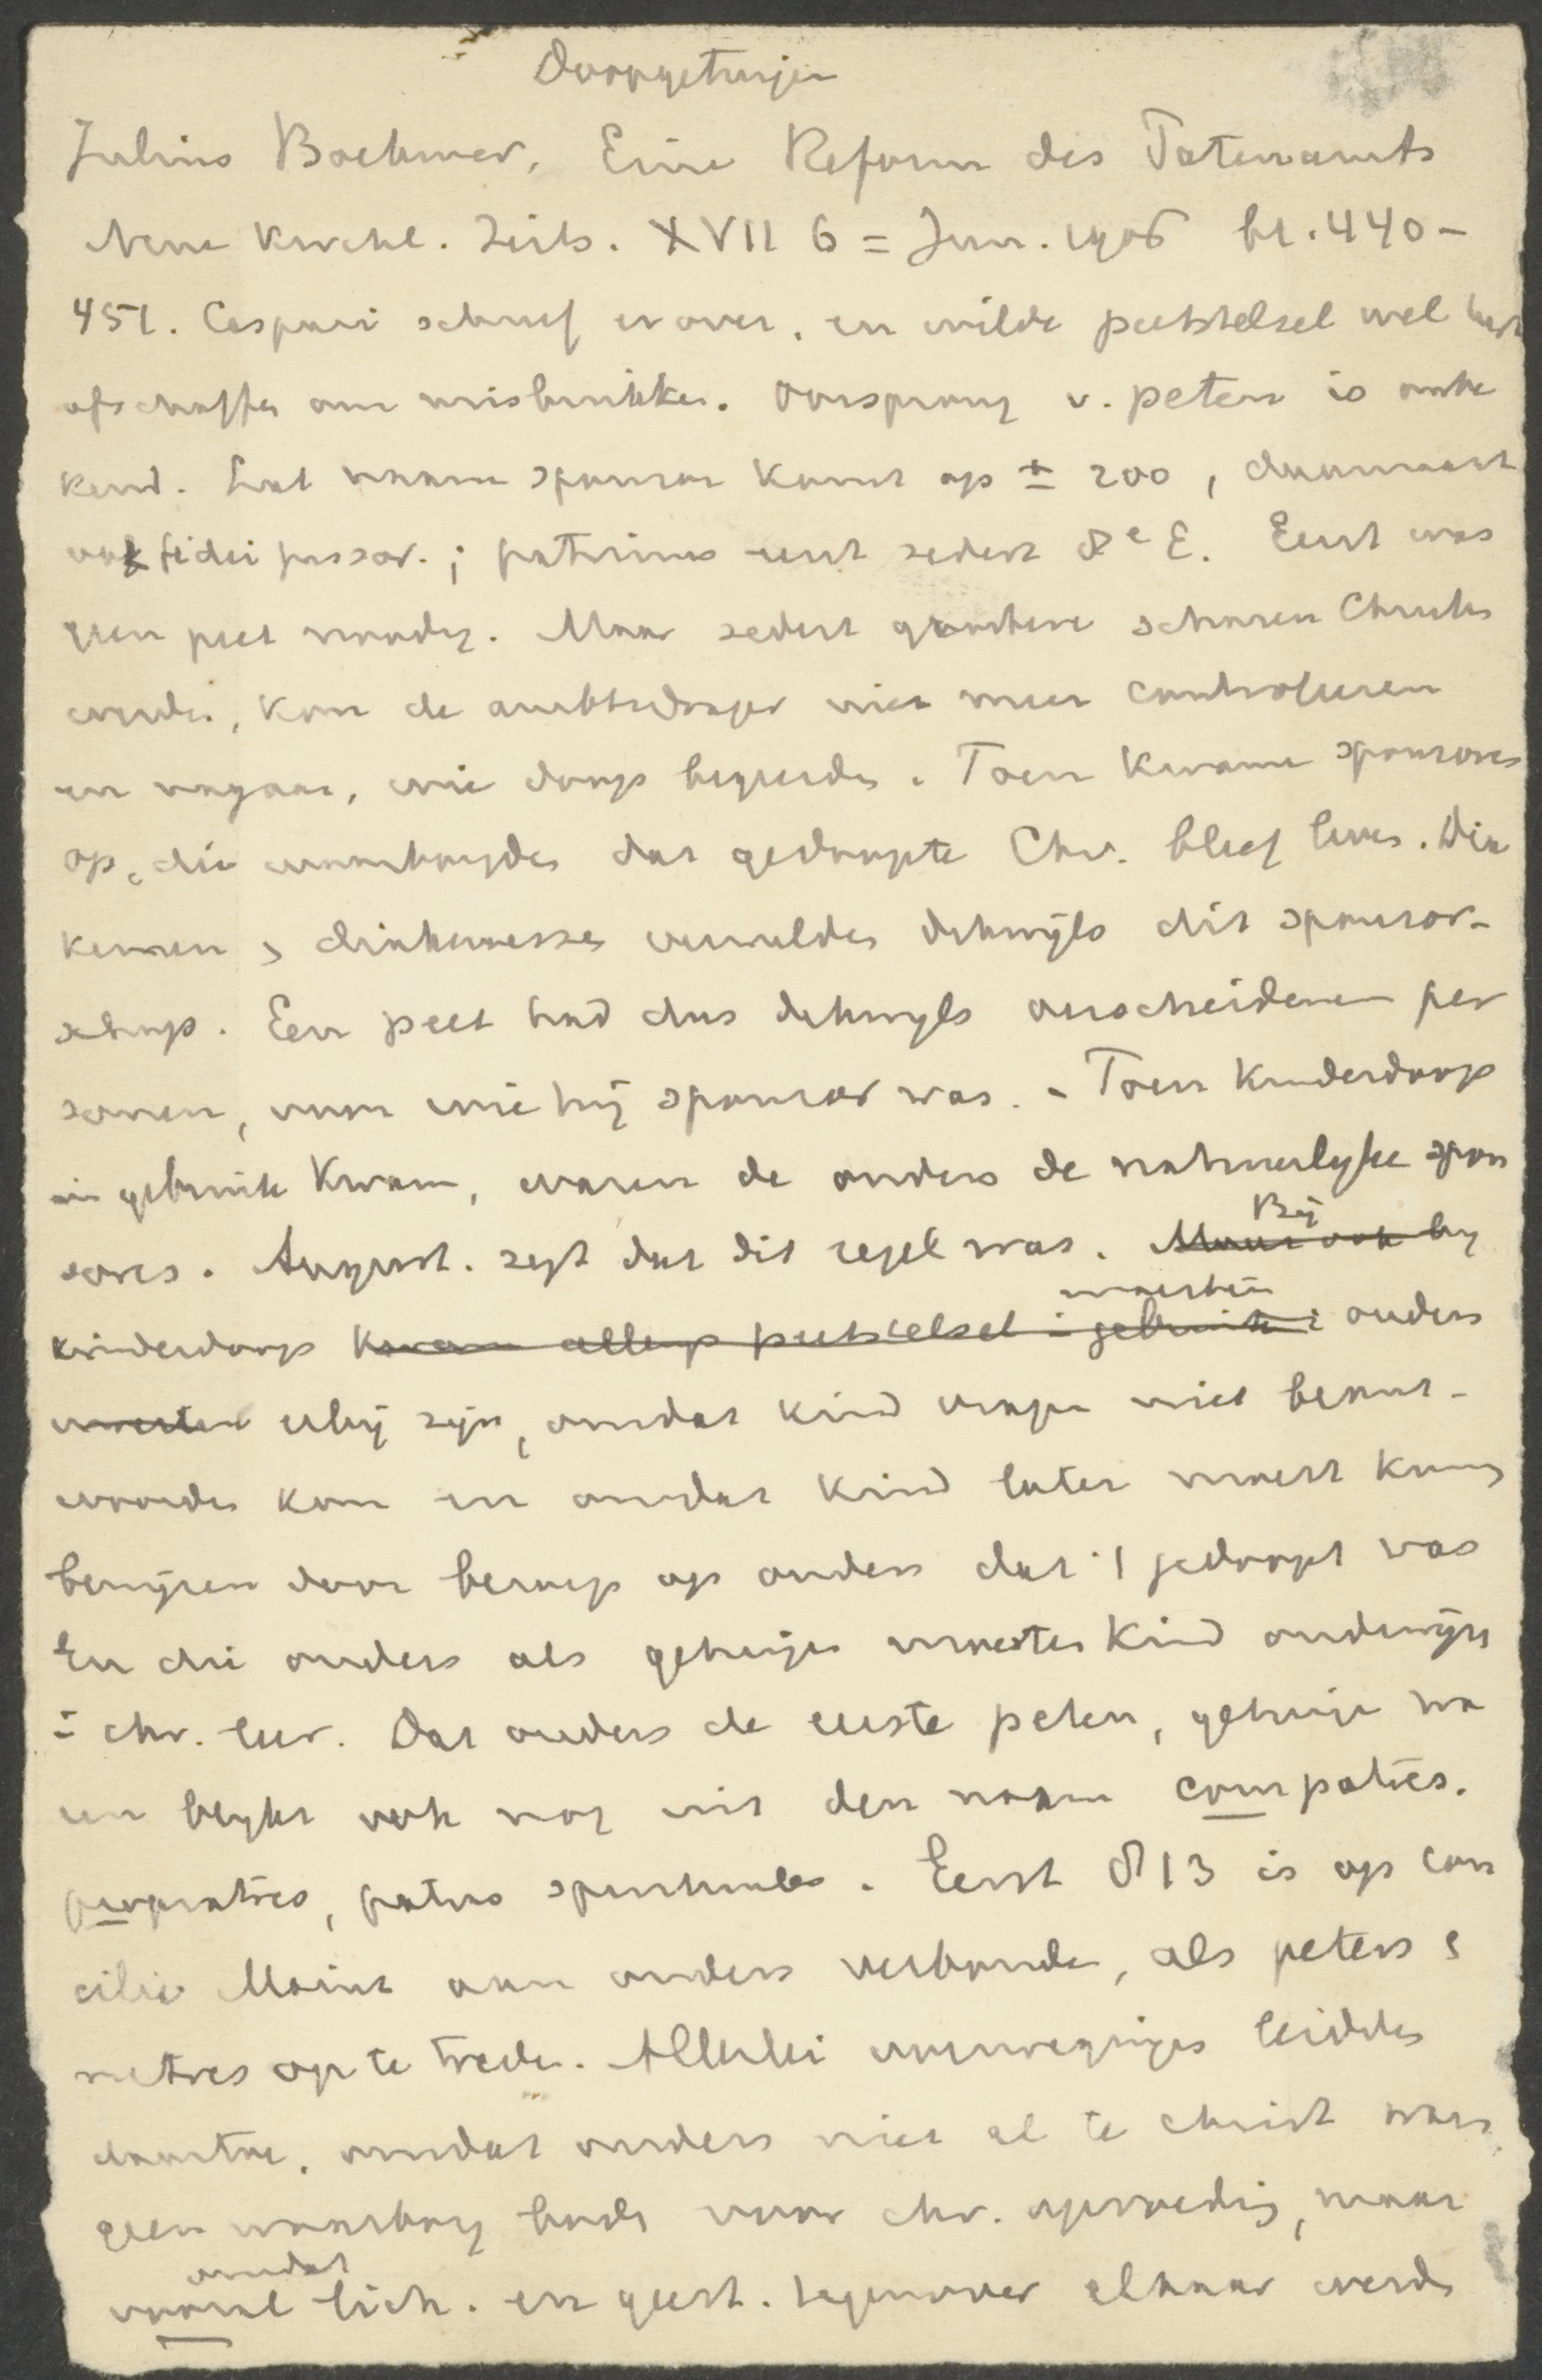 Doopgetuigen
Julius Boehmer, Eine Reform des Patenamts
Neue Kirchl. Zeits. XVII 6 = Juni. 1906 bl. 440-
451. Caspari schreef erover, en wilde peetstelsel wel
afschaffen om misbruiken. Oorsprong v. peten is onbe
kend. Lat naam sponsor komt op ± 200, daarnaast
ook fidei jussor.; patrinus eerst sedert 8e E. Eerst was
geen peet noodig. Maar sedert grootere scharen Christen
werden, kon de ambtsdrager niet meer controleeren
en nagaan, wie doop begeerden. Toen kwamen sponsores
op, die waarborgden dat gedoopte Chr. bleef leven. Dia
kenen & diakenessen vervulden dikwijls dit sponsor-
schap. Een peet had dus dikwijls verscheidenen per
sonen, voor wie hij sponsor was. - Toen kinderdoop
in gebruik kwam, waren de ouders de natuurlijke spon
sores. August. zegt dat dit regel was. Maar ook by Bij
kinderdoop kwam allengs peetstelsel i gebruik: moesten ouders
moesten erbij zijn, omdat kind vragen niet beant-
woorden kon en omdat kind later moest kunnen
bewijzen door beroep op ouders dat 't gedoopt was
En die ouders als getuigen moesten kind onderwijzen
i chr. leer. Dat ouders de eerste peten, getuigen wa
ren blijkt ook nog uit den naam compatres.
propatres, patres spirituales. Eerst 813 is op con
cilie Mainz aan ouders verboden, als peters &
metres op te treden. Allerlei overwegingen leidden
daartoe. omdat ouders niet al te christ waren
geen waarborg boden voor chr. opvoeding, maar
vooral omdat lich. en geest. tegenover elkaar werd